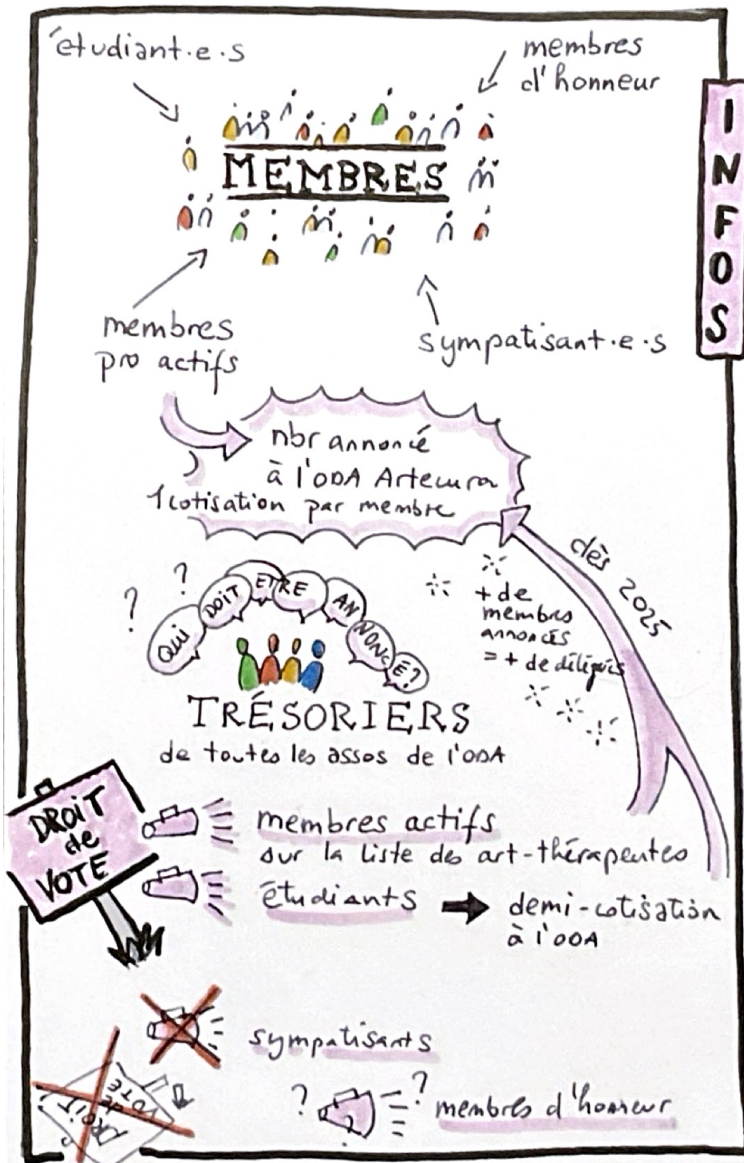 étudiant·e·s
membres
d'honneur
INFOS
MEMBRES
membres
pro actifs
sympatisant·e·s
nbr annoncé
à l'ODA Artecura
1 cotisation par membre
dès 2025
+ de
membres
annoncés
= + de délégués
? ?
QUI DOIT ETRE AN NONCÉ?
TRÉSORIERS
de toutes les assos de l'ODA
DROIT
de
VOTE
membres actifs
sur la liste des art-thérapeutes
étudiants → demi-cotisation
à l'ODA
sympatisants
DROIT
de
VOTE
? ? membres d'honneur
?